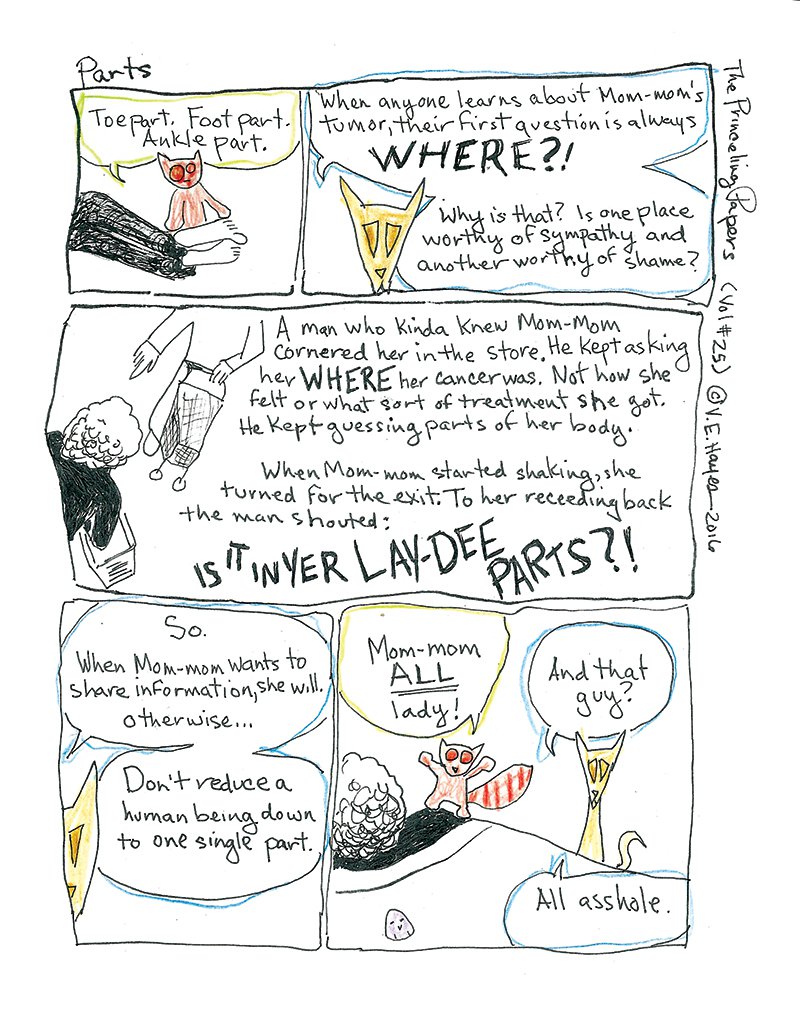 Parts
Toe part. Foot part.
Ankle part.
When anyone learns about Mom-mom's
tumor, their first question is always
WHERE?!
Why is that? Is one place
worthy of sympathy and
another worthy of shame?
A man who kinda knew Mom-Mom
cornered her in the store. He kept asking
her WHERE her cancer was. Not how she
felt or what sort of treatment she got.
He kept guessing parts of her body.
When Mom-mom started shaking, she
turned for the exit. To her receeding back
the man shouted:
IS IT IN YER LAY-DEE
PARTS?!
So.
When Mom-mom wants to
share information, she will.
otherwise...
Don't reduce a
human being down
to one single part.
Mom-mom
ALL
lady!
And that
guy?
All asshole.
The Princeling Papers (Vol #25) © V.E. Hayes—2016